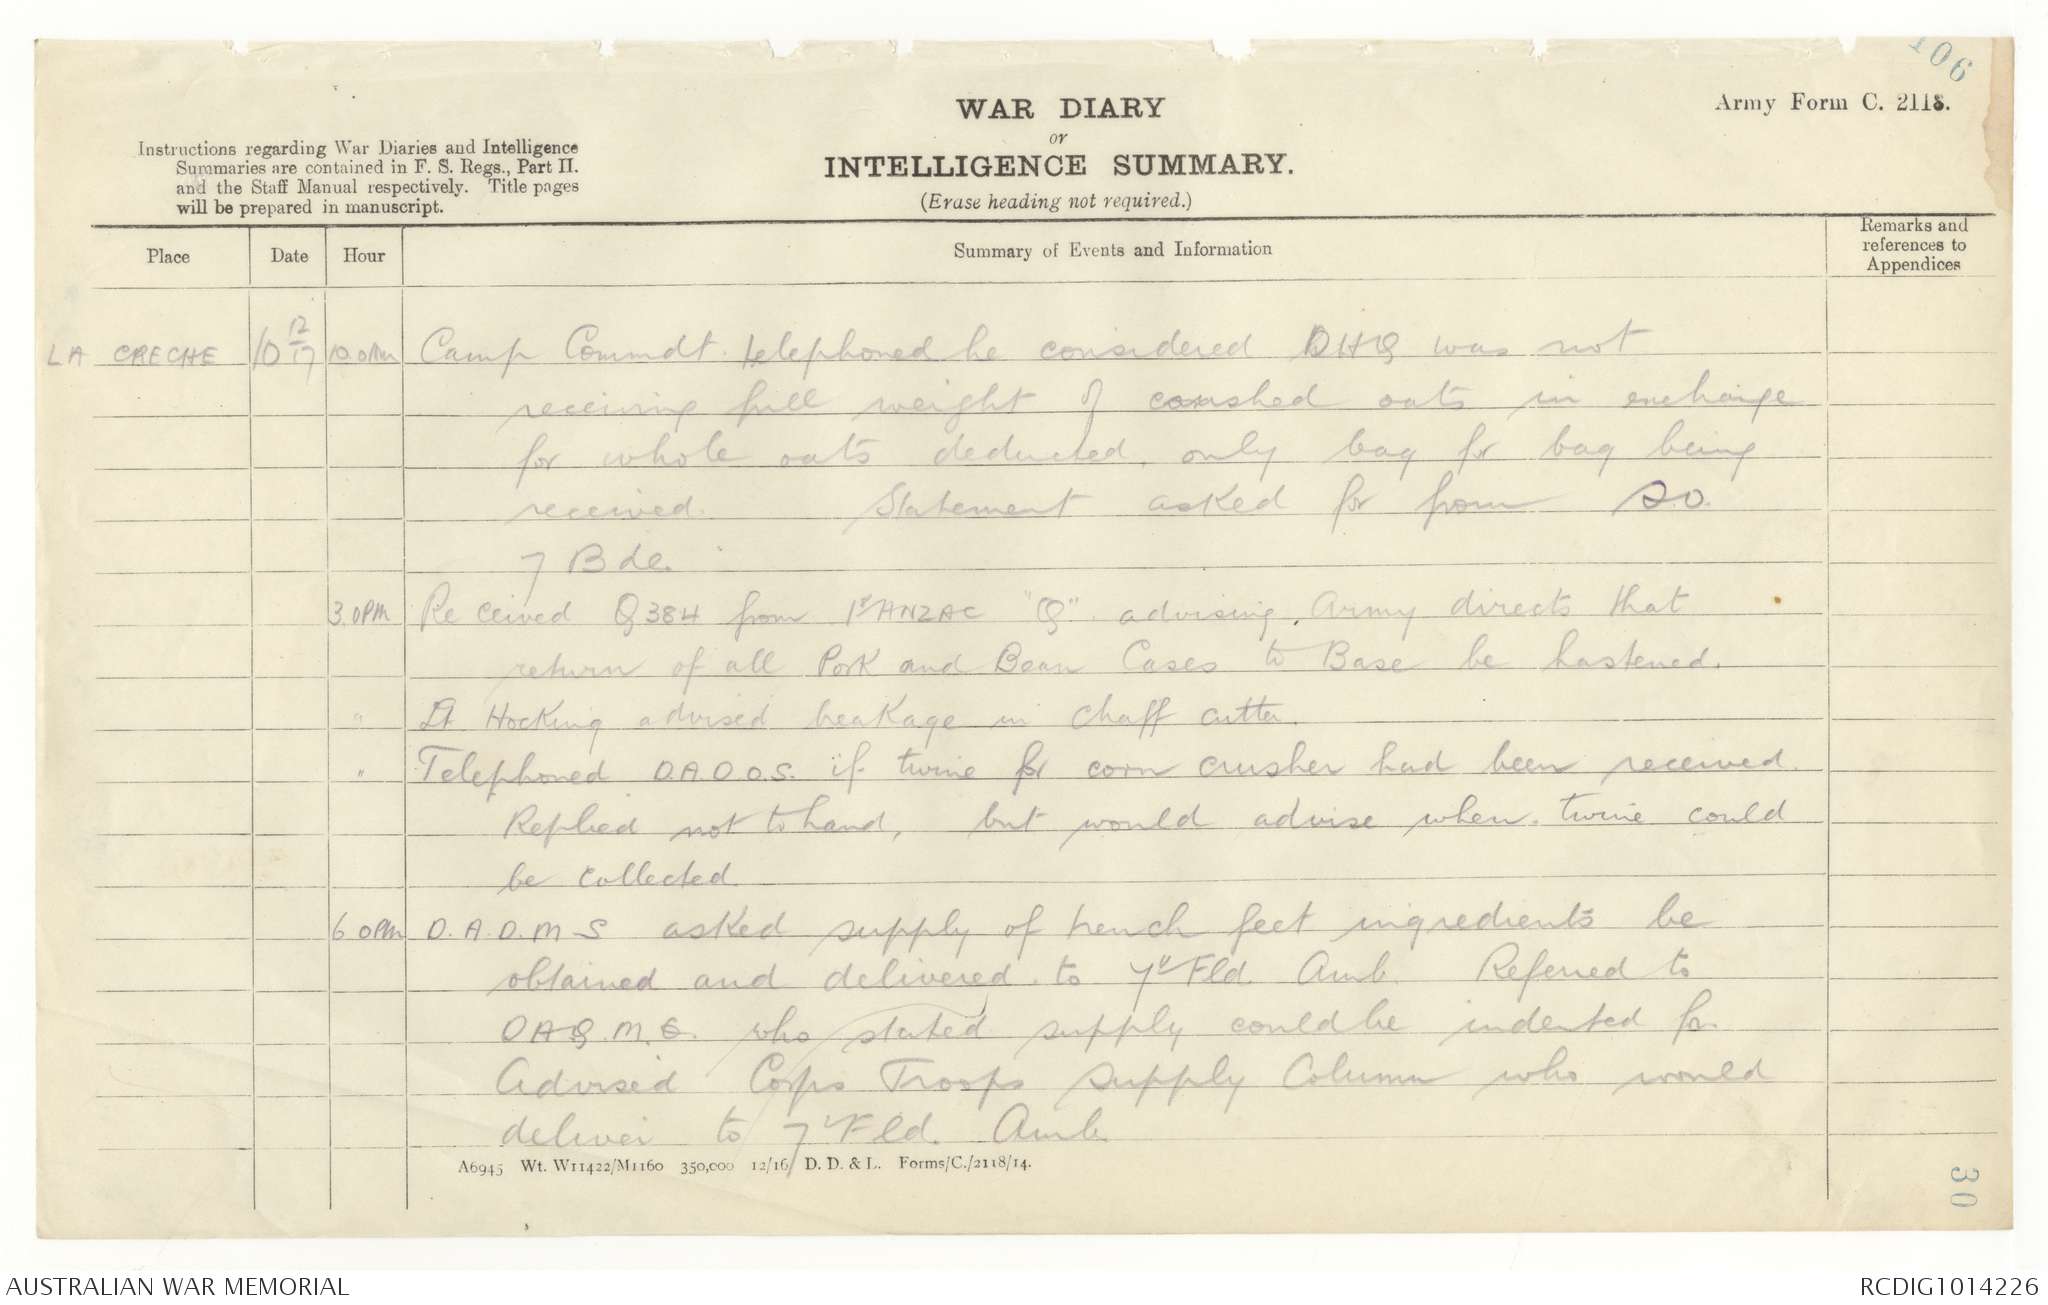 106
Army Form C. 2118.
WAR DIARY
or
INTELLIGENCE SUMMARY.
(Erase heading not required.)
Instructions regarding War Diaries and Intelligence
Summaries are contained in F. S. Regs., Part II.
and the Staff Manual respectively. Title pages
will be prepared in manuscript.
Place Date Hour Summary of Events and Information Remarks and references to Appendices
LA CRECHE 10 12/17 10.0 AM Camp Commdt. telephoned he considered DHQ was not
receiving full weight of crushed oats in exchange
for whole oats deducted, only bag for bag being
received. Statement asked for from S.O.
7 Bde.
3.0PM Received Q384 from 1st ANZAC "Q" advising Army directs that
return of all Pork and Bean Cases to Base be hastened.
" Lt Hocking advised beakage in chaff cutter.
" Telephoned D.A.D.O.S. if twine for corn crusher had been received.
Replied not to hand, but would advise when twine could
be collected.
6 0PM D.A.D.M.S asked supply of trench feet ingredients be
obtained and delivered to 7th Fld. Amb. Referred to
DAQ.M.G. who stated supply could be indented for.
Advised Corps Troops Supply Column who would
deliver to 7th Fld. Amb.
A6945 Wt. W11422/M1160 350,000 12/16 D. D. & L. Forms/C./2118/14.
30
AUSTRALIAN WAR MEMORIAL
RCDIG1014226